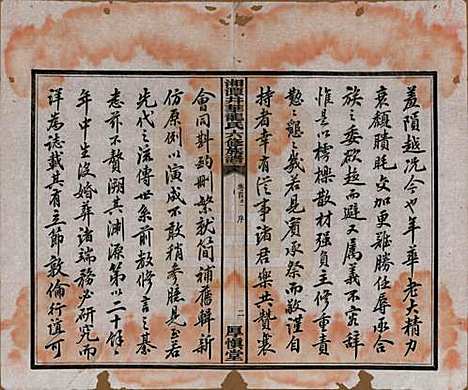 羞隕越況今也年華老大精力
衰頹賾耗交加更難勝任辱承合
族之委欲趨而避又屬義不容辭
惟是以樗櫟散材強負主修重責
懃懃懇懇之義若見賓承祭而敬謹自
持者幸有從事諸君樂共贊襄
湘潭井華龍氏六修族譜
序
二
厚慎堂
會同斟酌刪繁就簡補舊輯新
仿原例以演成不敢稍參臆見至若
先代之流傳世系前數修言之綦
志茲不贅溯其淵源第以二十餘
年中生沒婚葬諸端務必研究而
詳為誌載其有立節敦倫行誼可